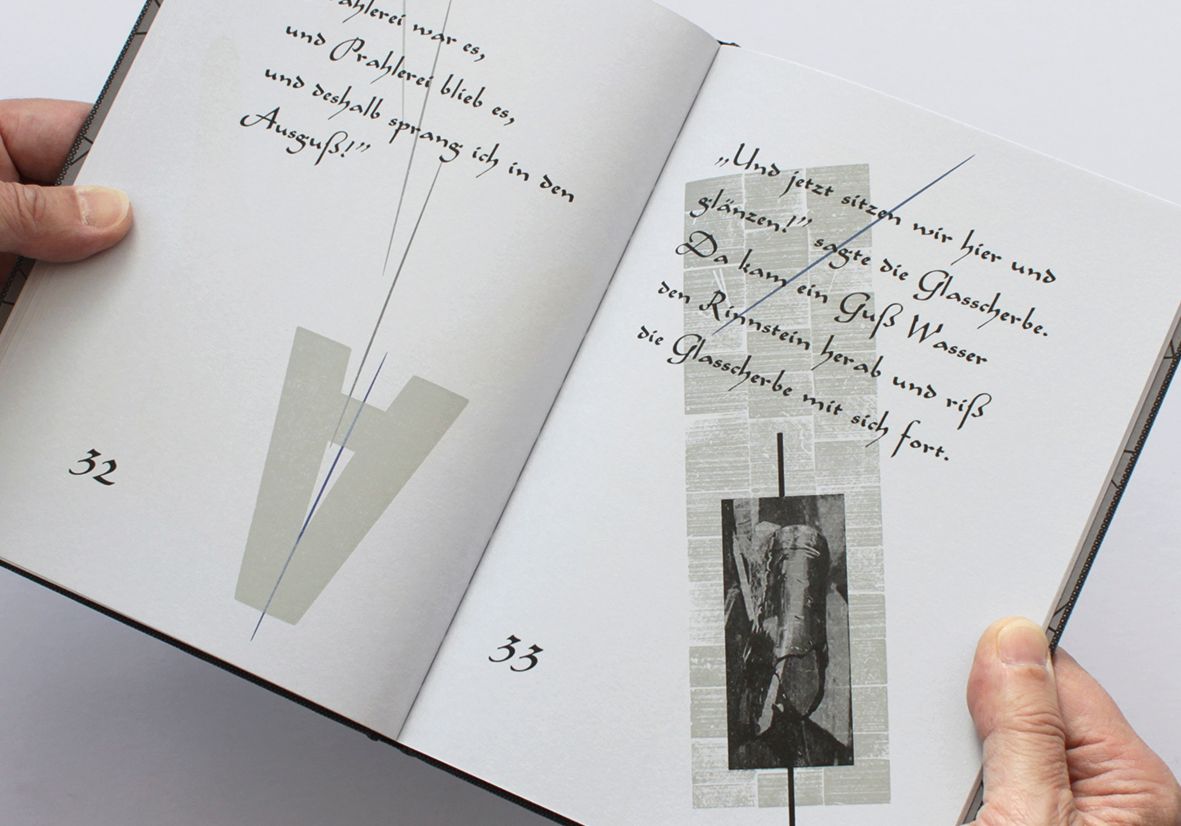 Prahlerei war es,
und Prahlerei blieb es,
und deshalb sprang ich in den
Ausguß!”
32
„Und jetzt sitzen wir hier und
glänzen!” sagte die Glasscherbe.
Da kam ein Guß Wasser
den Rinnstein herab und riß
die Glasscherbe mit sich fort.
33